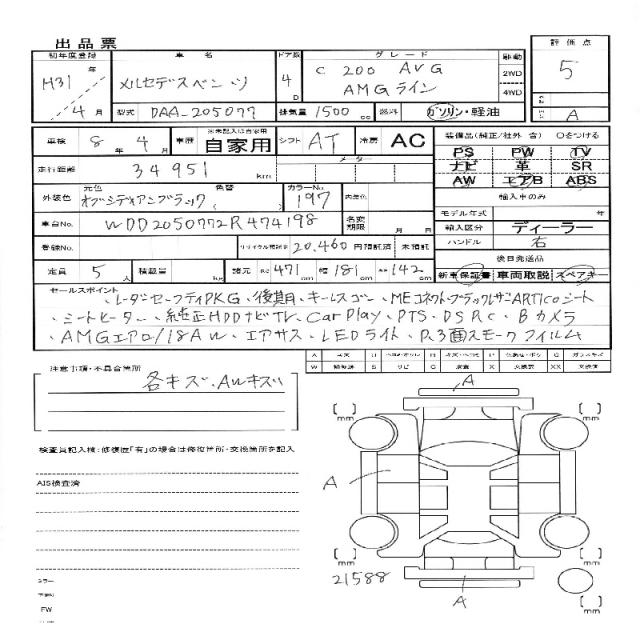 出品票
初年度登録 車名 ドア数 グレード 駆動 評価点
H31年 4月 メルセデスベンツ 4D C 200 AVG AMGライン 2WD 4WD 5
型式 DAA-205077 排気量 1500cc 燃料 ガソリン・軽油 A
車検 8年 4月 車歴 ※未記入は自家用 自家用 シフト AT 冷房 AC 装備品(純正/社外 含) ○をつける
走行距離 34951 km メーター
PS PW TV
ナビ 革 SR
AW エアB ABS
外装色 元色 オブシディアンブラック 色替 ( ) カラーNo. 197 内装色 輸入車のみ
車台No. WDD2050772R474198 名変期限 月 日
モデル年式 年
輸入区分 ディーラー
ハンドル 右
登録No. リサイクル預託金 20,460 円預託済 未預託
後日発送品
定員 5人 積載量 kg 諸元 長さ 471 cm 幅 181 cm 高さ 142 cm 新車保証書 車両取説 スペアキー
セールスポイント
、レーダーセーフティPKG、後期、キーレスゴー、MEコネクト・ブラックレザーARTICOシート
、シートヒーター、純正HDDナビTV、Car Play、PTS、DSRC、Bカメラ
、AMGエアロ/18AW、エアサス、LEDライト、R.3面スモークフィルム
注意事項・不具合箇所
各キズ、AWキズ
検査員記入欄:修復歴「有」の場合は修復箇所・交換箇所を記入
AIS検査済
A
A
A
[ ]mm [ ]mm
[ ]mm [ ]mm
[ ]mm
21588
ミラー
FW